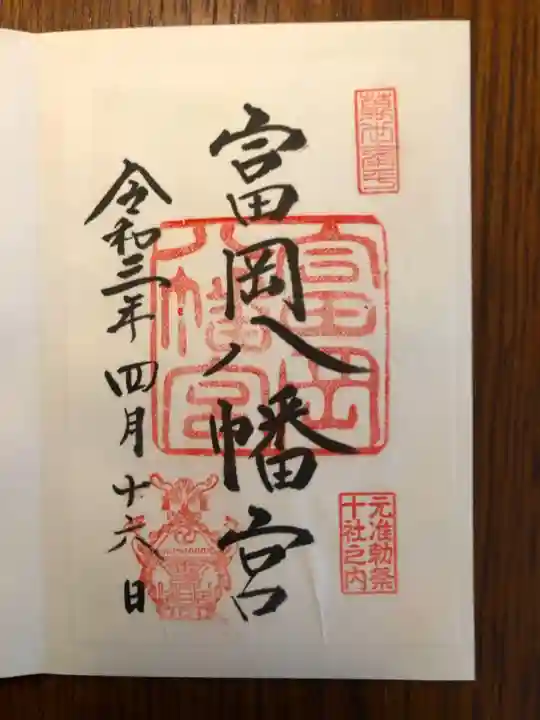 富岡八幡宮
富岡
八幡宮
元准勅祭
十社之内
令和三年四月十六日